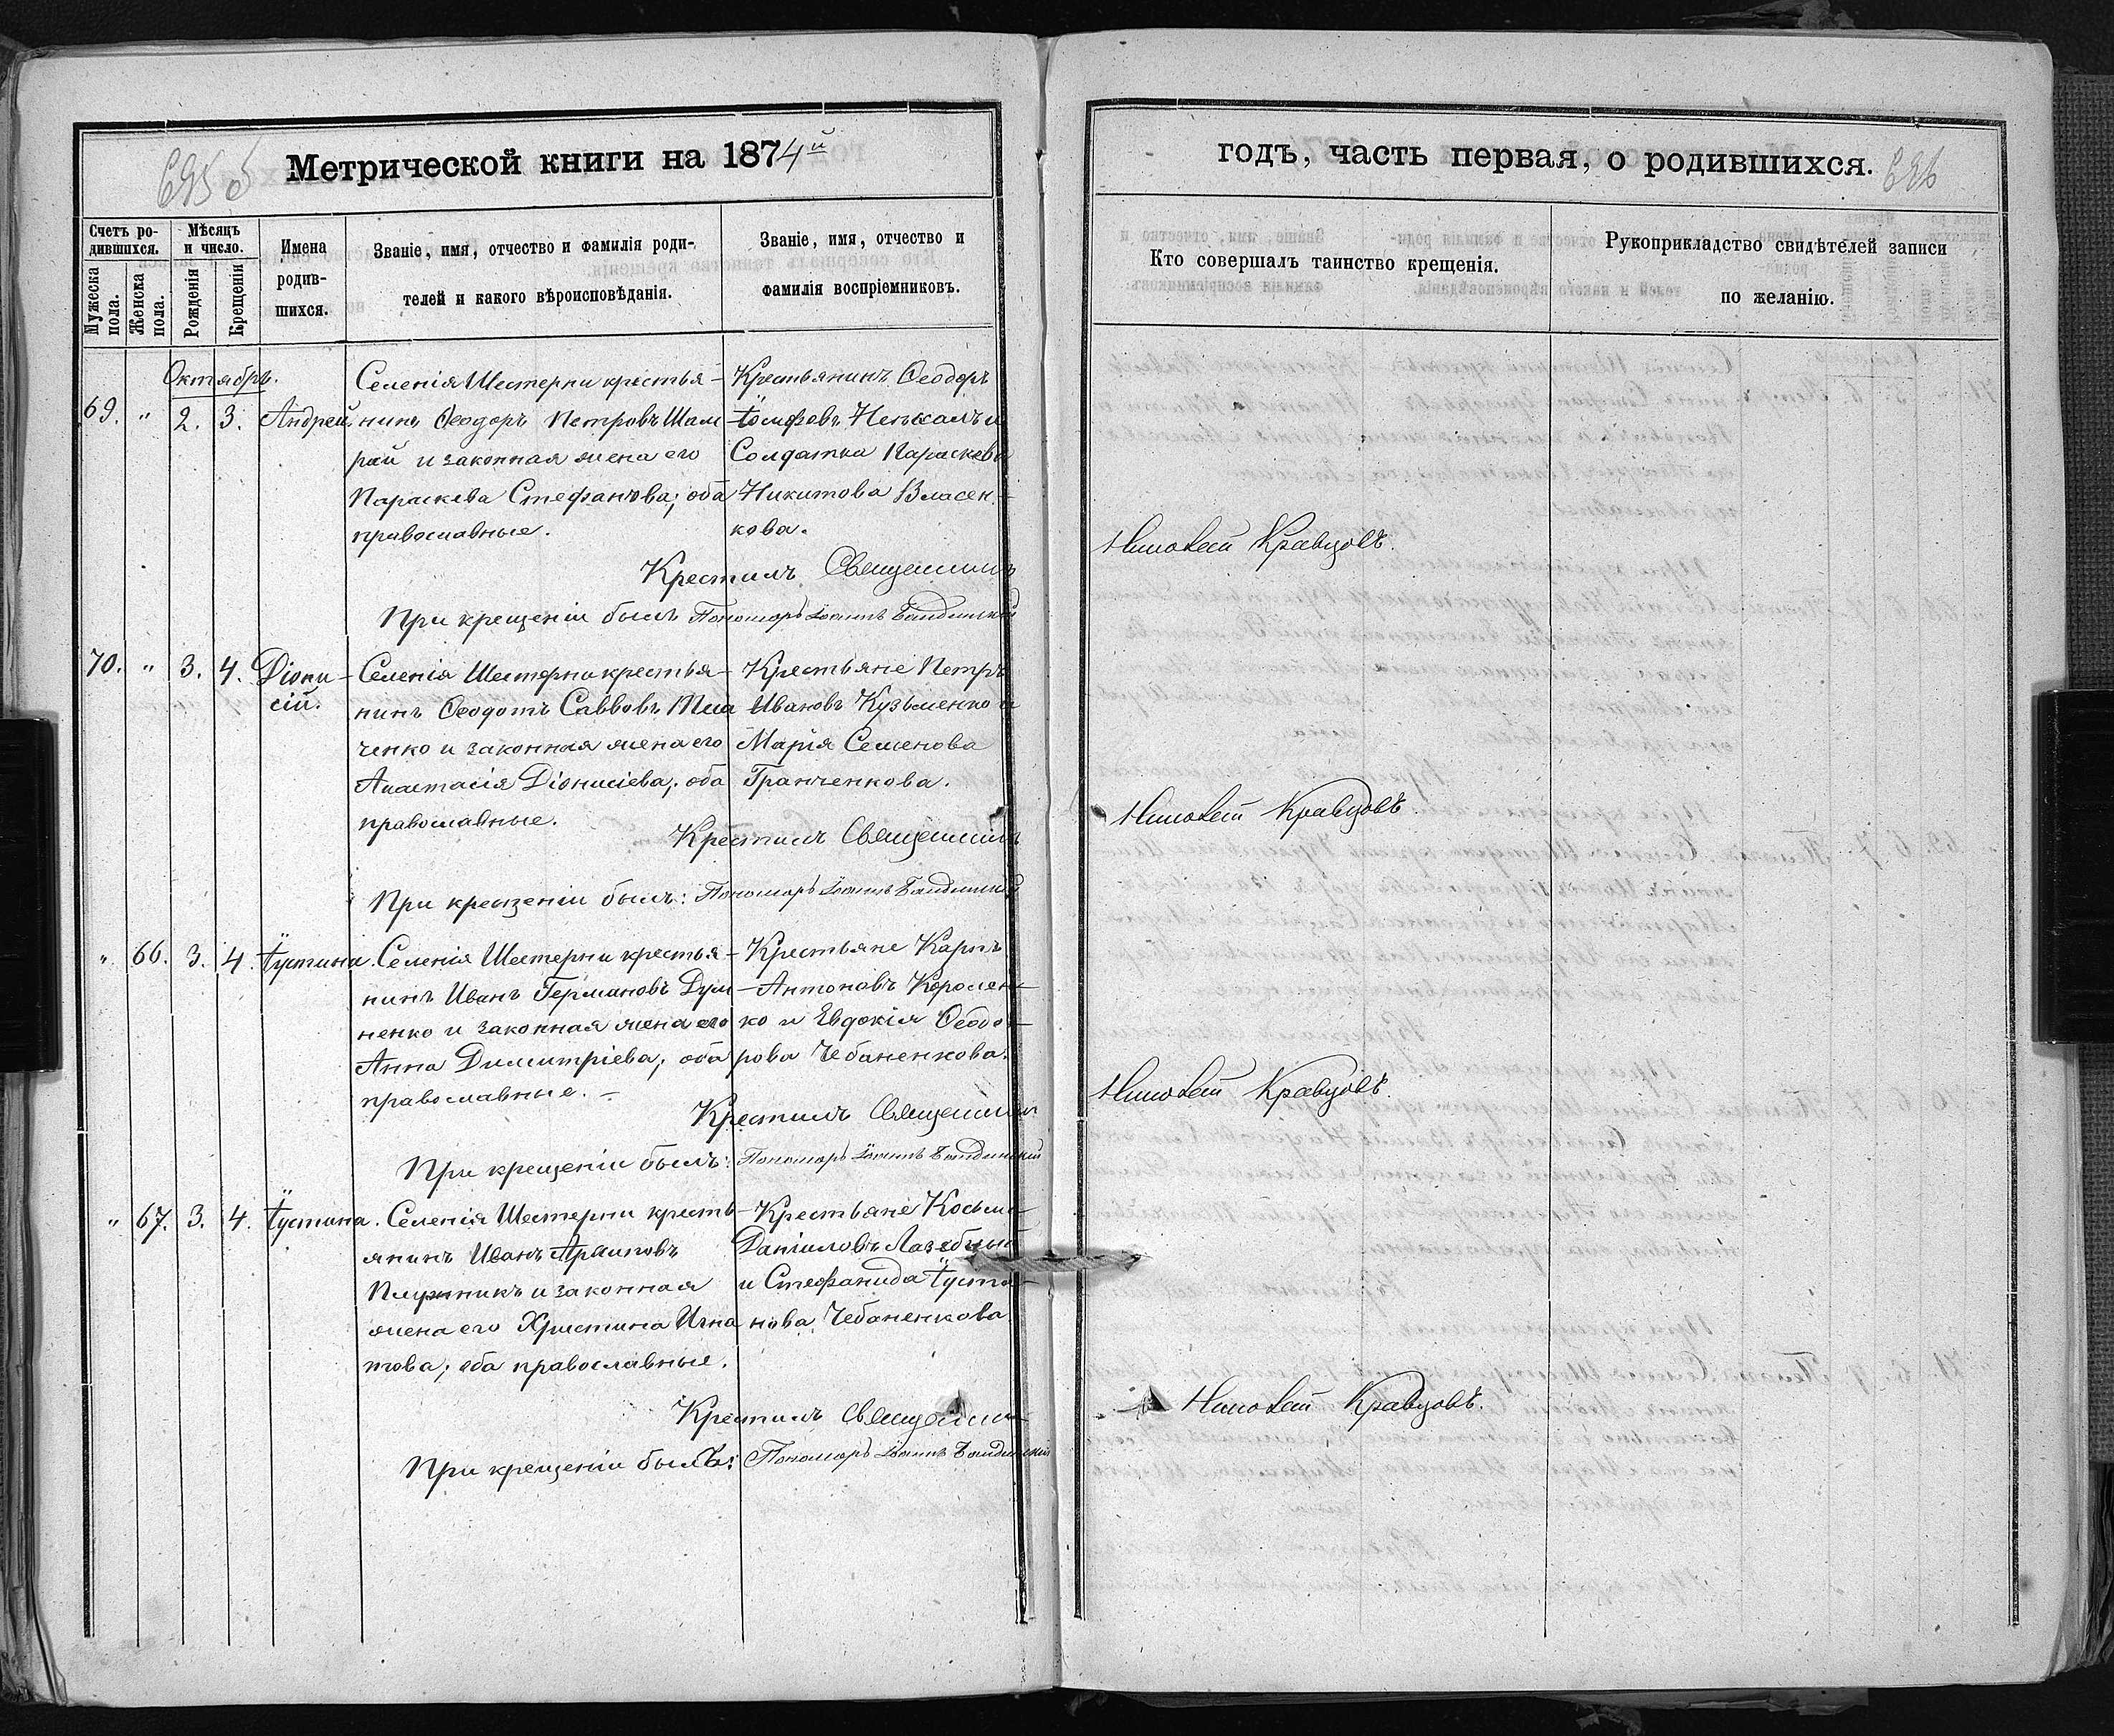 695 б
Метрической книги на 1874й
Счетъ ро-
дившихся.
Мужеска
пола.
Женска
пола.
Мѣсяцъ
и число.
Рожденія
Крещенія
Имена
родив-
шихся.
Званіе, имя, отчество и фамилія роди-
телей и какого вѣроисповѣданія.
Званіе, имя, отчество и
фамилія воспріемниковъ.
Октябрь.
69. " 2. 3. Андрей
Селенія Шестерни крестья-
нинъ Ѳеодоръ Петровъ Шам
рай и законная жена его
Параскева Стефанова; оба
православные.
Крестьянинъ Ѳеодоръ
Солдатка Параскева
Никитова Власен-
кова.
Крестилъ Священникъ
При крещеніи былъ Пономарь Іоаннъ
70. " 3. 4. Діони-
сій.
Селенія Шестерни крестья-
нинъ Ѳеодотъ Саввовъ
ченко и законная жена его
Анастасія Діонисіева; оба
православные.
Крестьяне Петръ
Ивановъ Кузьменко и
Марія Семенова
Гранченкова.
Крестилъ Священникъ
При крещеніи былъ: Пономарь Іоаннъ
" 66. 3. 4. Іустина.
Селенія Шестерни крестья-
нинъ Иванъ Германовъ Дум-
ненко и законная жена его
Анна Димитріева; оба
православные. —
Крестьяне Карпъ
Антоновъ Королен-
ко и Евдокія Ѳеодо-
рова Чебаненкова.
Крестилъ Священникъ
При крещеніи былъ: Пономарь Іоаннъ
" 67. 3. 4. Іустина.
Селенія Шестерни кресть-
янинъ Иванъ
и законная
жена его Христина Игна
това; оба православные.
Крестьяне Косьма
Даніиловъ
и Стефанида Іусти-
нова Чебаненкова
Крестилъ Священникъ
При крещеніи былъ: Пономарь Іоаннъ
годъ, часть первая, о родившихся.
696
Кто совершалъ таинство крещенія.
Рукоприкладство свидѣтелей записи
по желанію.
Николай Кравцовъ.
Николай Кравцовъ.
Николай Кравцовъ.
Николай Кравцовъ.